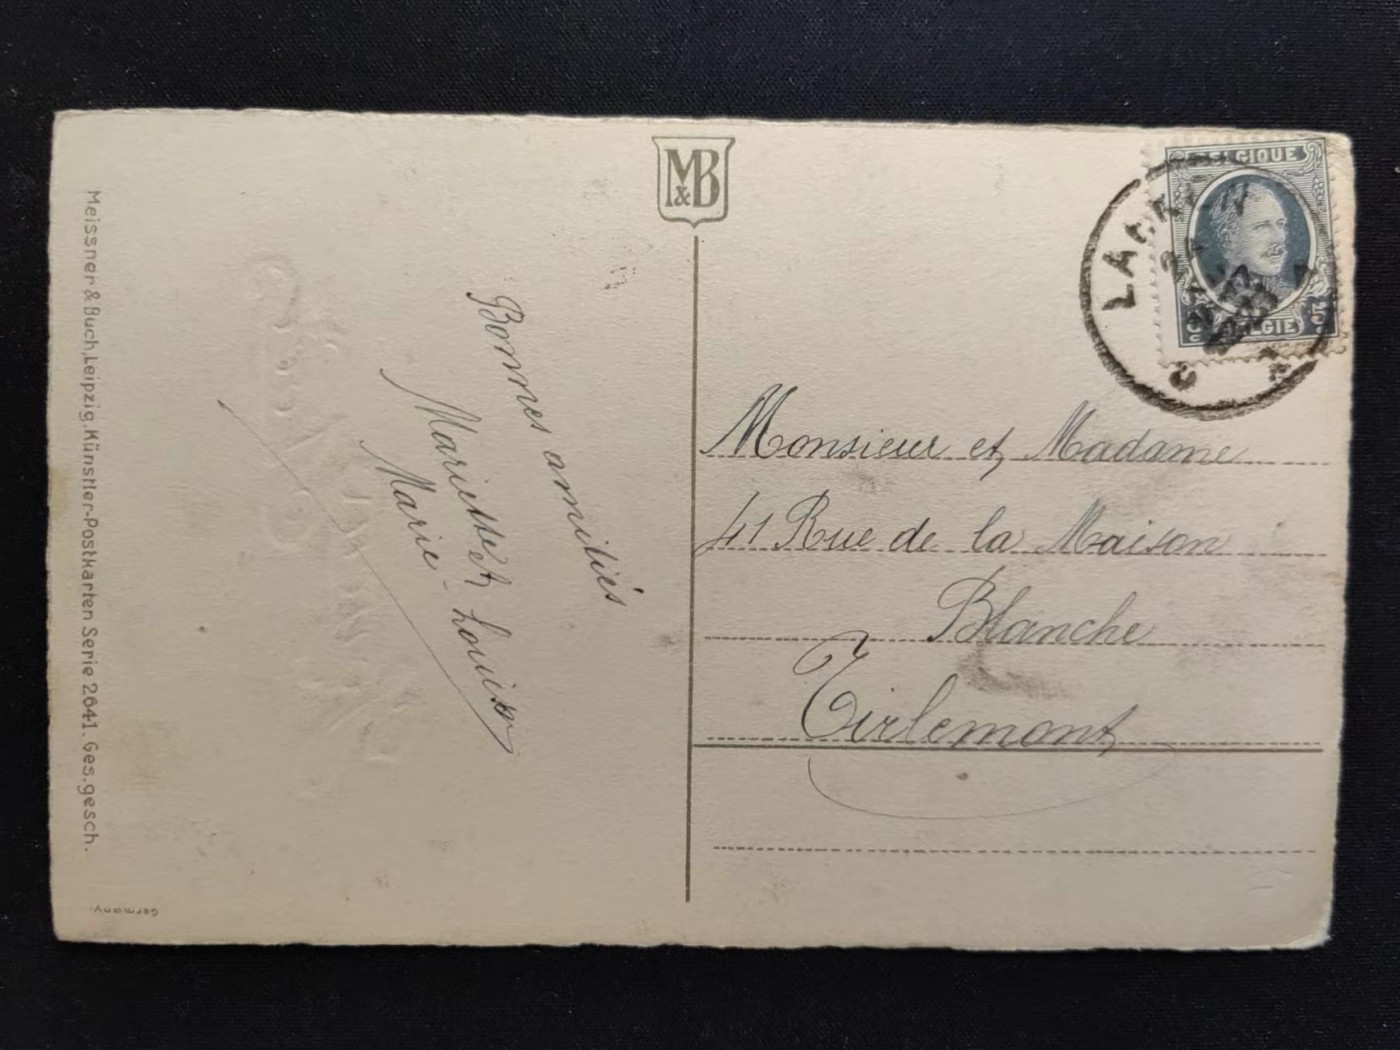 Meissner & Buch, Leipzig. Künstler-Postkarten Serie 2641. Ges. gesch.
Germany.
M&B
Bonnes amitiés
Mariette et
Marie-Louise
BELGIQUE
BELGIË
Monsieur et Madame
41 Rue de la Maison
Blanche
Tirlemont